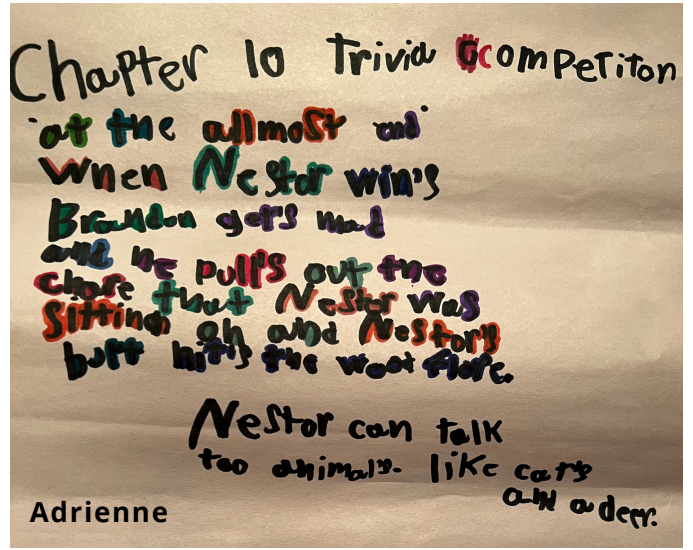 Chapter 10 Trivia Ccompetiton
"at the allmost end"
When Nestor win's
Brandon get's mad
and he pull's out the
chore that Nester was
Sitting on and Nestor's
butt hit's the woot flore.
Nestor can talk
too animal's. like cat's
and a deer.
Adrienne